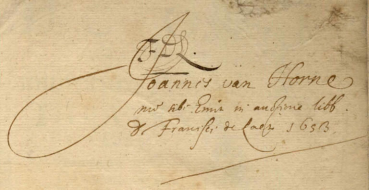 Joannis van Horne
sibi Emit in auctione libb.
D. Francisci de Laet 1653